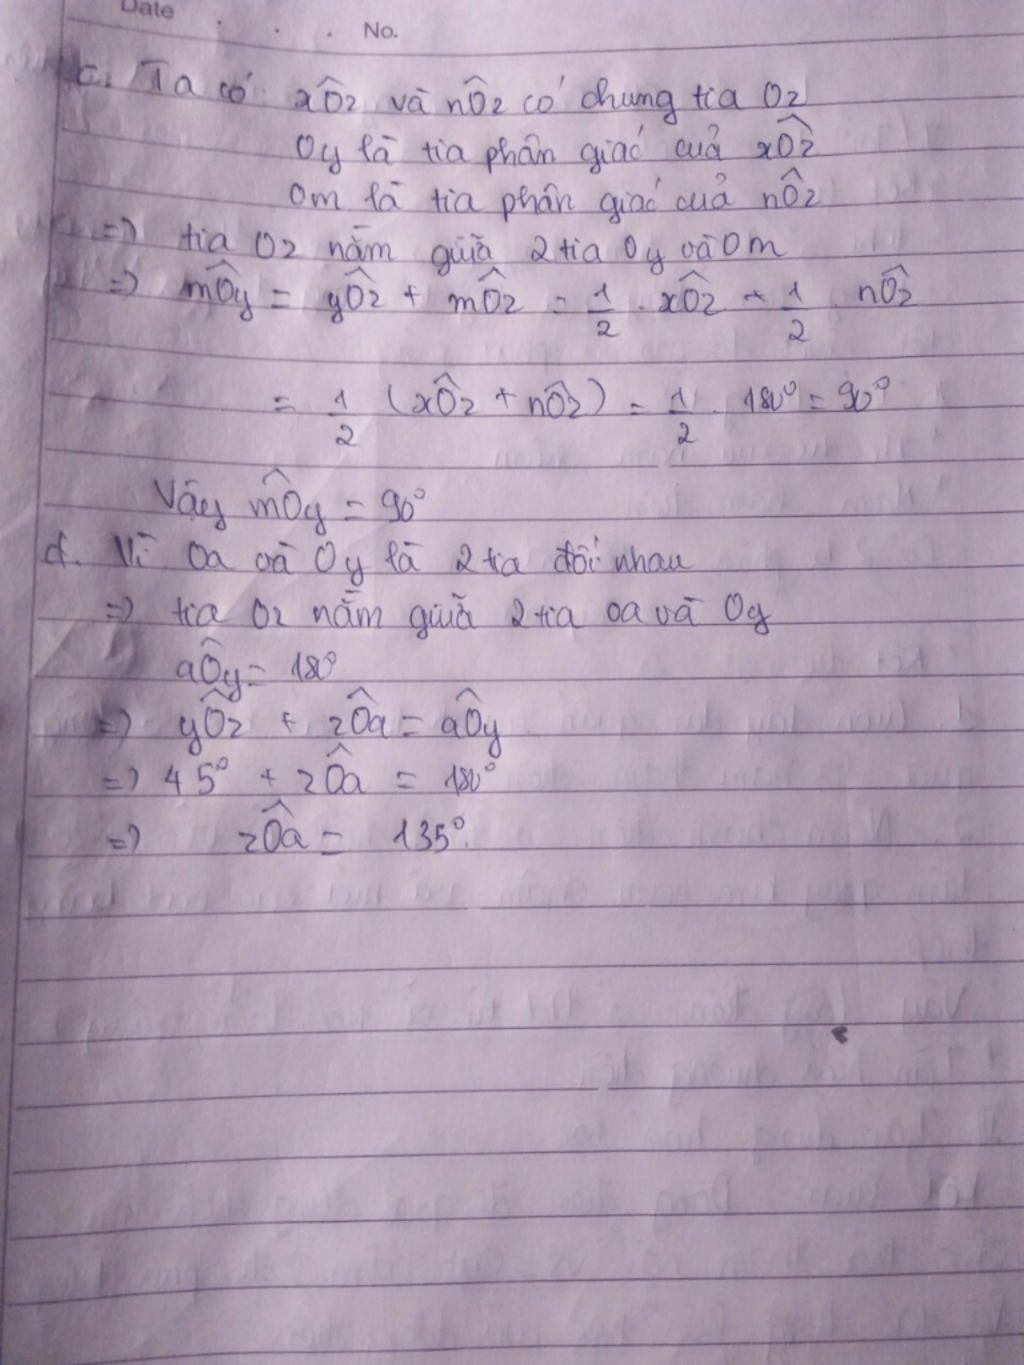 Date . . . No.
c. Ta có: xÔz và nÔz có chung tia Oz
Oy là tia phân giác của xÔz
Om là tia phân giác của nÔz
=> tia Oz nằm giữa 2 tia Oy và Om
=> mÔy = yÔz + mÔz = 1/2 . xÔz + 1/2 nÔz
= 1/2 (xÔz + nÔz) = 1/2 . 180° = 90°
Vậy mÔy = 90°
d. Vì Oa và Oy là 2 tia đối nhau
=> tia Oz nằm giữa 2 tia Oa và Oy
aÔy = 180°
=> yÔz + zÔa = aÔy
=> 45° + zÔa = 180°
=> zÔa = 135°.